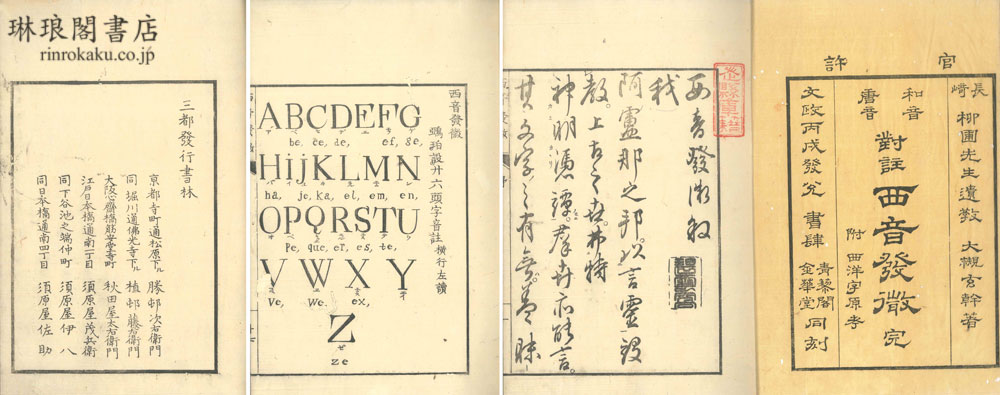 琳琅閣書店
rinrokaku.co.jp
官許
長崎 柳圃先生遺教 大槻玄幹著
和音 唐音 對註 西音發微 完
附 西洋字原考
文政丙戌發兌 書肆 青藜閣 金華堂 同刻
西音發微敘
我
阿盧那之邦。以言靈設
教。上古之世。弗特
神明憑譚。群卉亦能言。
其文字之有無。蓋昧
西音發微
廿六頭字音註 横行左讀
ABCDEFG
be, ce, de, ef, ge,
HijKLMN
ha, je, ka, el, em, en,
OPQRSTU
Pe, que, er, es, te,
VWXY
Ve, We. ex,
Z
ze
三都發行書林
京都寺町通松原下ル 勝邨次右衛門
同 堀川通佛光寺下ル 植邨藤右衛門
大阪心齋橋筋安堂寺町 秋田屋太右衛門
江戸日本橋通南一丁目 須原屋茂兵衛
同下谷池之端仲町 須原屋伊八
同日本橋通南四丁目 須原屋佐助